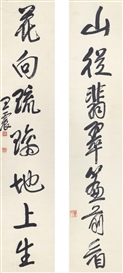 山從翡翠簾前看
花向琉璃地上生
王震